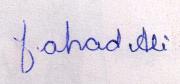 fahad Ali